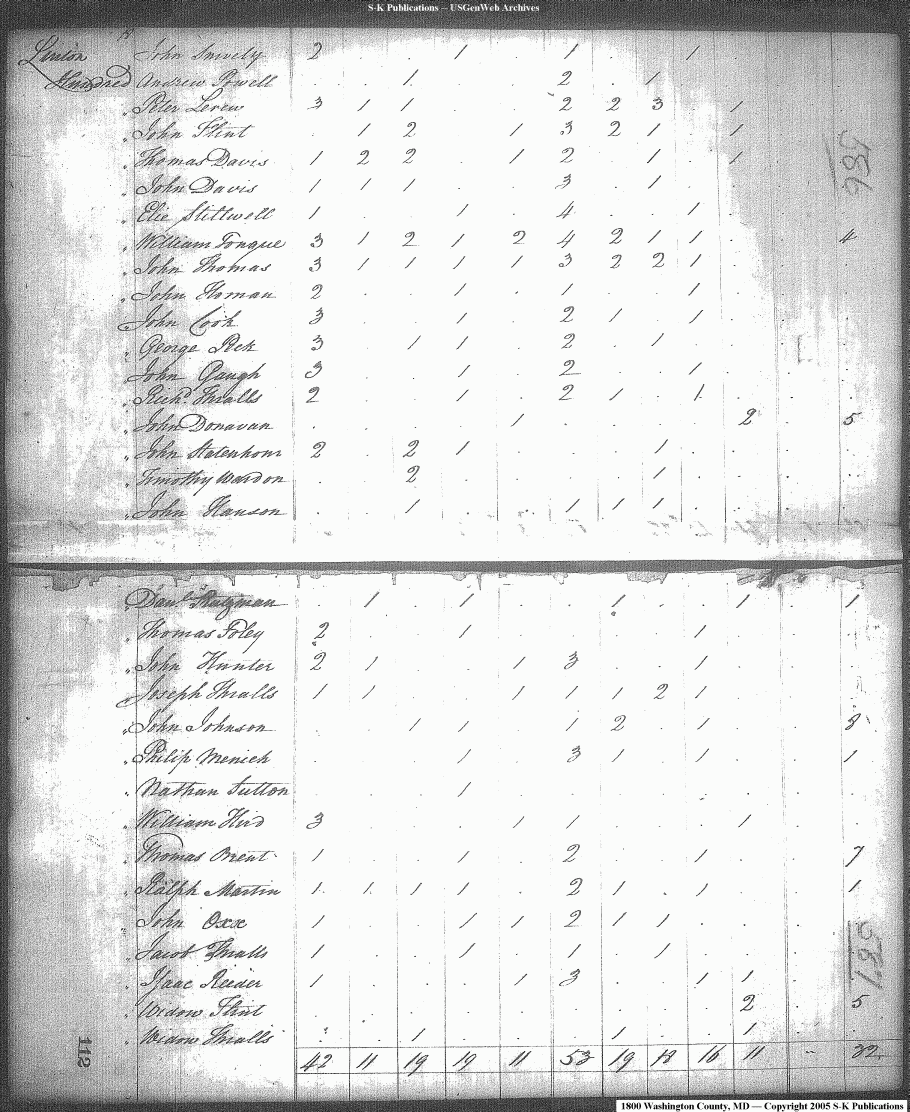 S-K Publications -- USGenWeb Archives
Linton John Snively 2 . . 1 . 1 . . 1
Hundred Andrew Powell . . 1 . . 2 . 1 .
" Peter Lerew 3 1 1 . . 2 2 3 . 1
" John Flint . 1 2 . 1 3 2 1 . 1
" Thomas Davis 1 2 2 . 1 2 . 1 . 1
" John Davis 1 1 1 . . 3 . 1 .
" Elie Stillwell 1 . . 1 . 4 . . 1 .
" William Tongue 3 1 2 1 2 4 2 1 1 . . 4
" John Thomas 3 1 1 1 1 3 2 2 1 . .
" John Homan 2 . . 1 . 1 . . 1 . .
" John Cook 3 . . 1 . 2 1 . 1 . .
" George Peck 3 . 1 1 . 2 . 1 . . .
" John Gaugh 3 . . 1 . 2 . . 1 . .
" Richd. Thralls 2 . . 1 . 2 1 . 1 . .
" John Donavan . . . . 1 . . . . 2 . 5
" John Statenhom 2 . 2 1 . . . 1 . . .
" Timothy Wardon . . 2 . . . . 1 . . .
" John Hanson . . 1 . . 1 1 1 . . .
586
Danl. . 1 . 1 . . 1 . . 1 . 1
" Thomas Foley 2 . . 1 . . . . 1 . . .
" John Hunter 2 1 . . 1 3 . . 1 . . .
" Joseph Thralls 1 1 . . 1 1 1 2 1 . . .
" John Johnson . . 1 1 . 1 2 . 1 . . 8
" Philip Menich . . . 1 . 3 1 . 1 . . 1
" Nathan Sutton . . . 1 . . . . . . . .
" William Hird 3 . . . 1 1 . . . 1 . .
" Thomas Brent 1 . . 1 . 2 . . 1 . . 7
" Ralph Martin 1 1 1 1 . 2 1 . 1 . . 1
" John Oxx 1 . . 1 1 2 1 1 . . . .
" Jacob Thralls 1 . . 1 . 1 . 1 . . . .
" Isaac Reeder 1 . . . 1 3 . . 1 1 . .
" Widow Flint . . . . . . . . . 2 . 5
" Widow Thralls . . 1 . . . 1 . . 1 . .
42 11 19 19 11 53 19 18 16 11 - 32
587
112
1800 Washington County, MD — Copyright 2005 S-K Publications